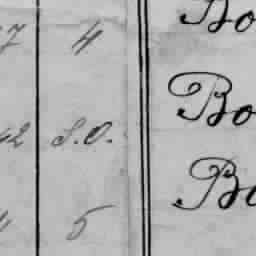 7 4 Bo
42 S.O. Bo
5 Bo